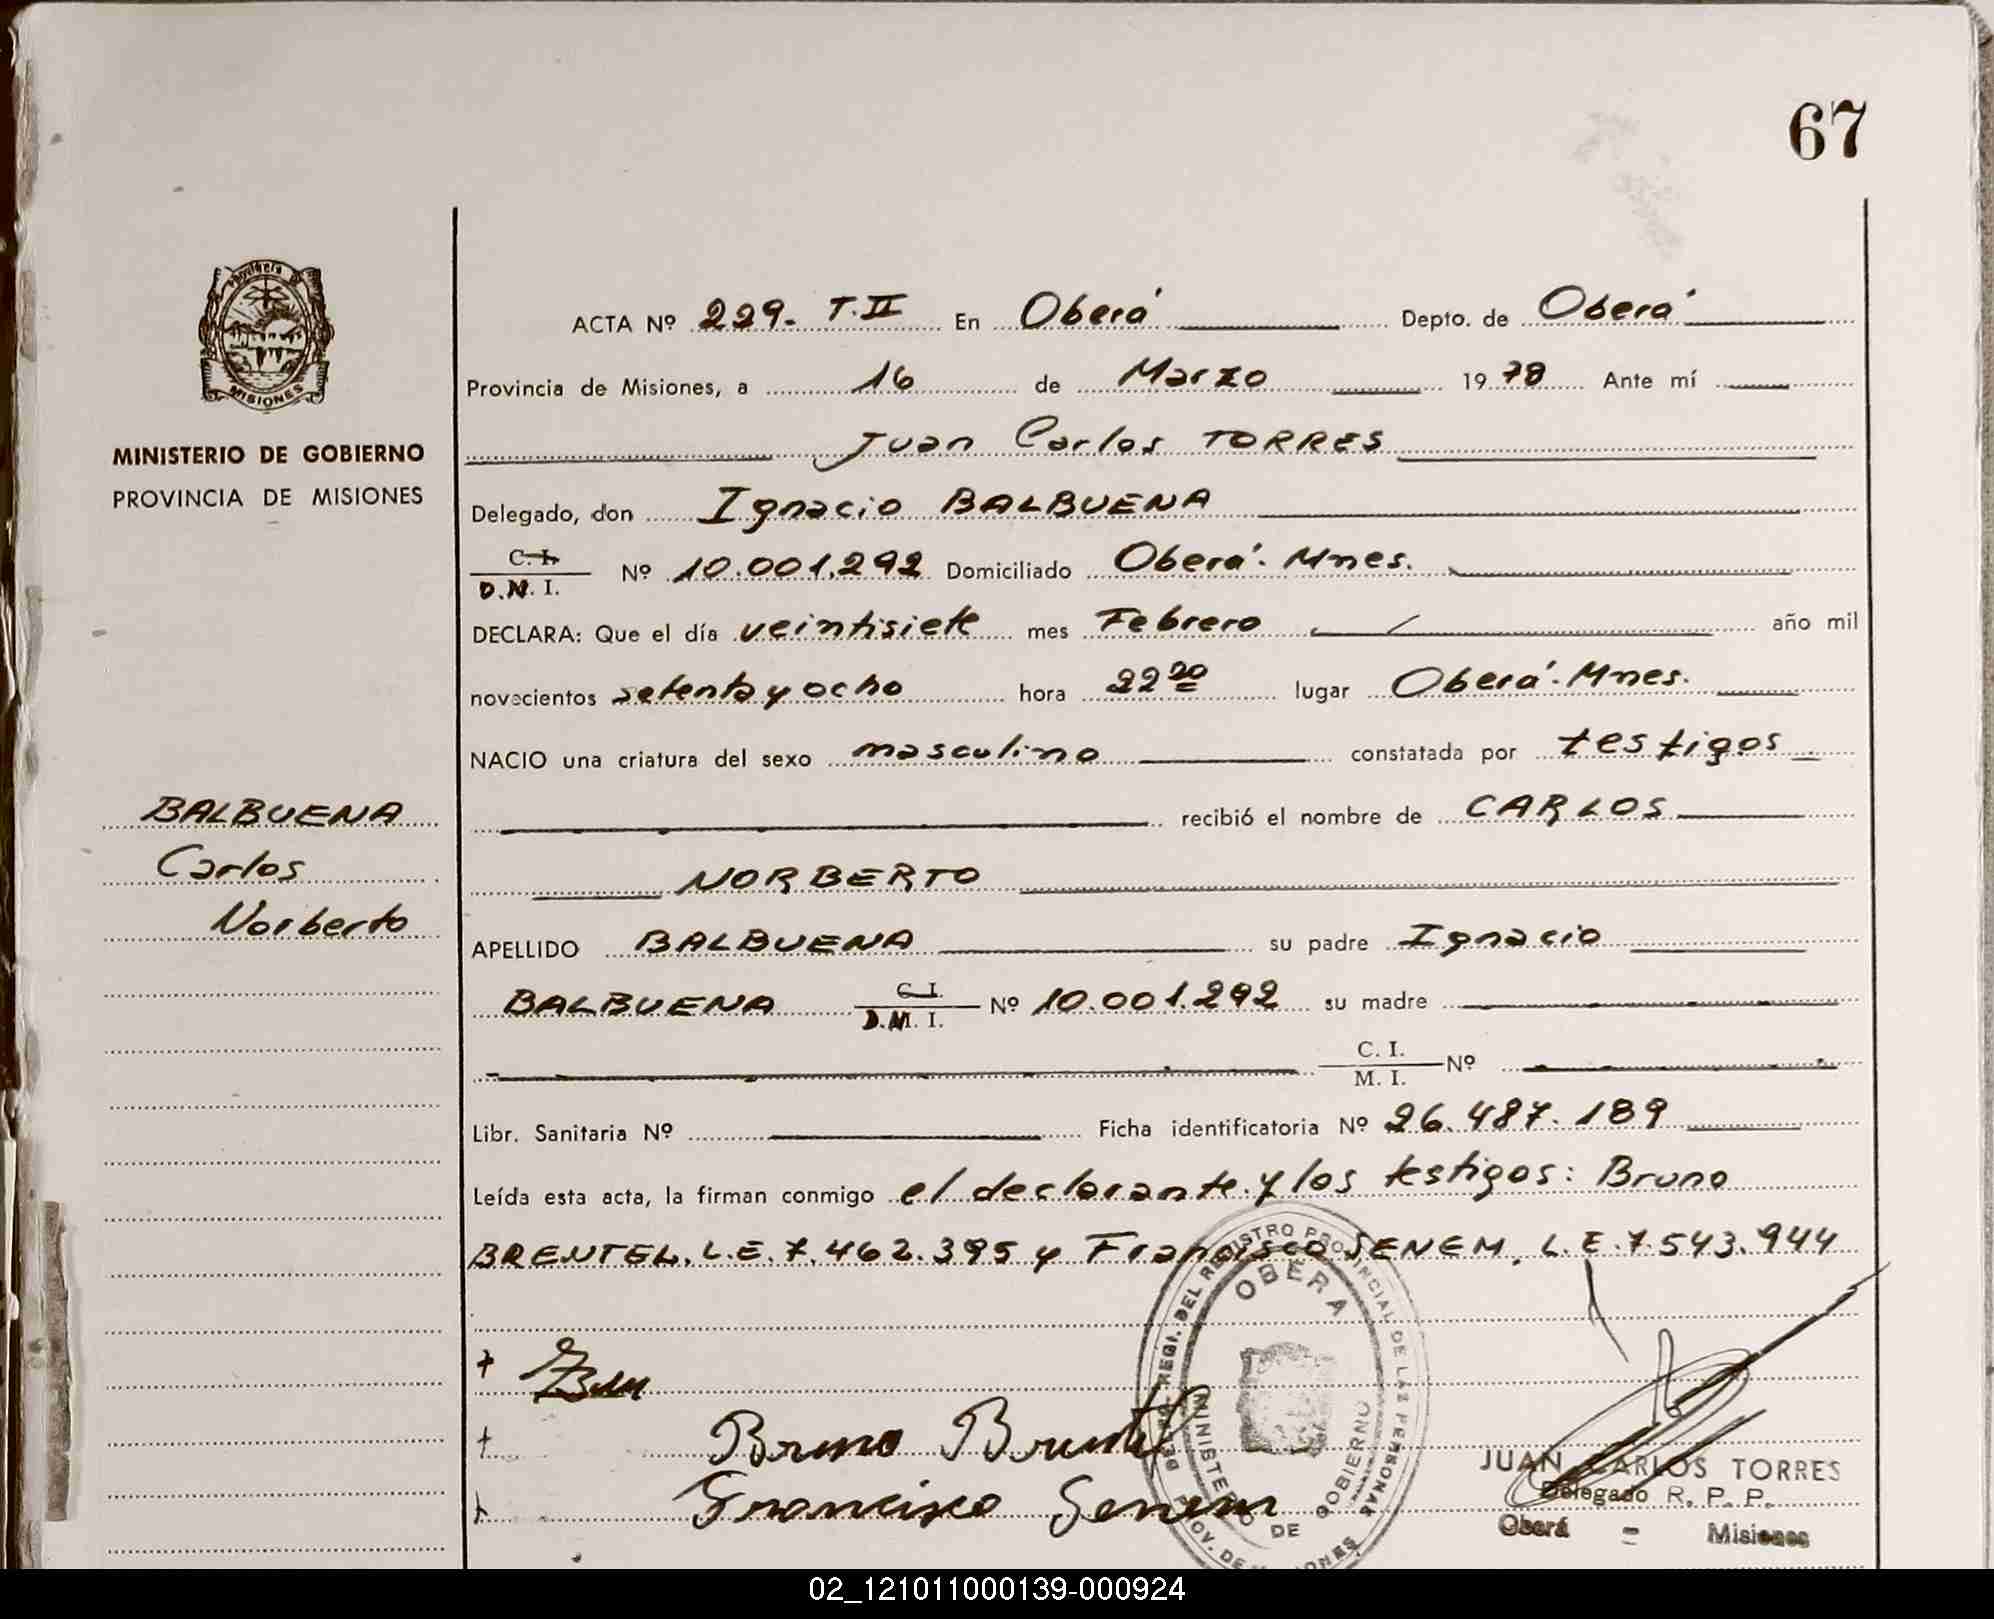 67
Provincia de
MISIONES
MINISTERIO DE GOBIERNO
PROVINCIA DE MISIONES
ACTA Nº 229. T.II En Oberá Depto. de Oberá
Provincia de Misiones, a 16 de Marzo 1978 Ante mí
Juan Carlos TORRES
Delegado, don Ignacio BALBUENA
C. I.
D.M. I. Nº 10.001.292 Domiciliado Oberá. Mnes.
DECLARA: Que el día veintisiete mes Febrero año mil
novecientos setenta y ocho hora 22 20 lugar Oberá. Mnes.
NACIO una criatura del sexo masculino constatada por testigos
BALBUENA
recibió el nombre de CARLOS
Carlos
NORBERTO
Norberto
APELLIDO BALBUENA su padre Ignacio
BALBUENA C. I.
D.M. I. Nº 10.001.292 su madre
C. I.
M. I. Nº
Libr. Sanitaria Nº Ficha identificatoria Nº 26.487.189
Leída esta acta, la firman conmigo el declarante y los testigos: Bruno
BRENTEL. L.E. 7.462.395 y Francisco SENEM, L.E. 7.543.944
DEL REGISTRO PROVINCIAL DE LAS PERSONAS
OBERA
MINISTERIO DE GOBIERNO
PROV. DE MISIONES
Bruno Brentel
Francisco Senem
JUAN CARLOS TORRES
Delegado R. P. P.
Oberá - Misiones
02_121011000139-000924